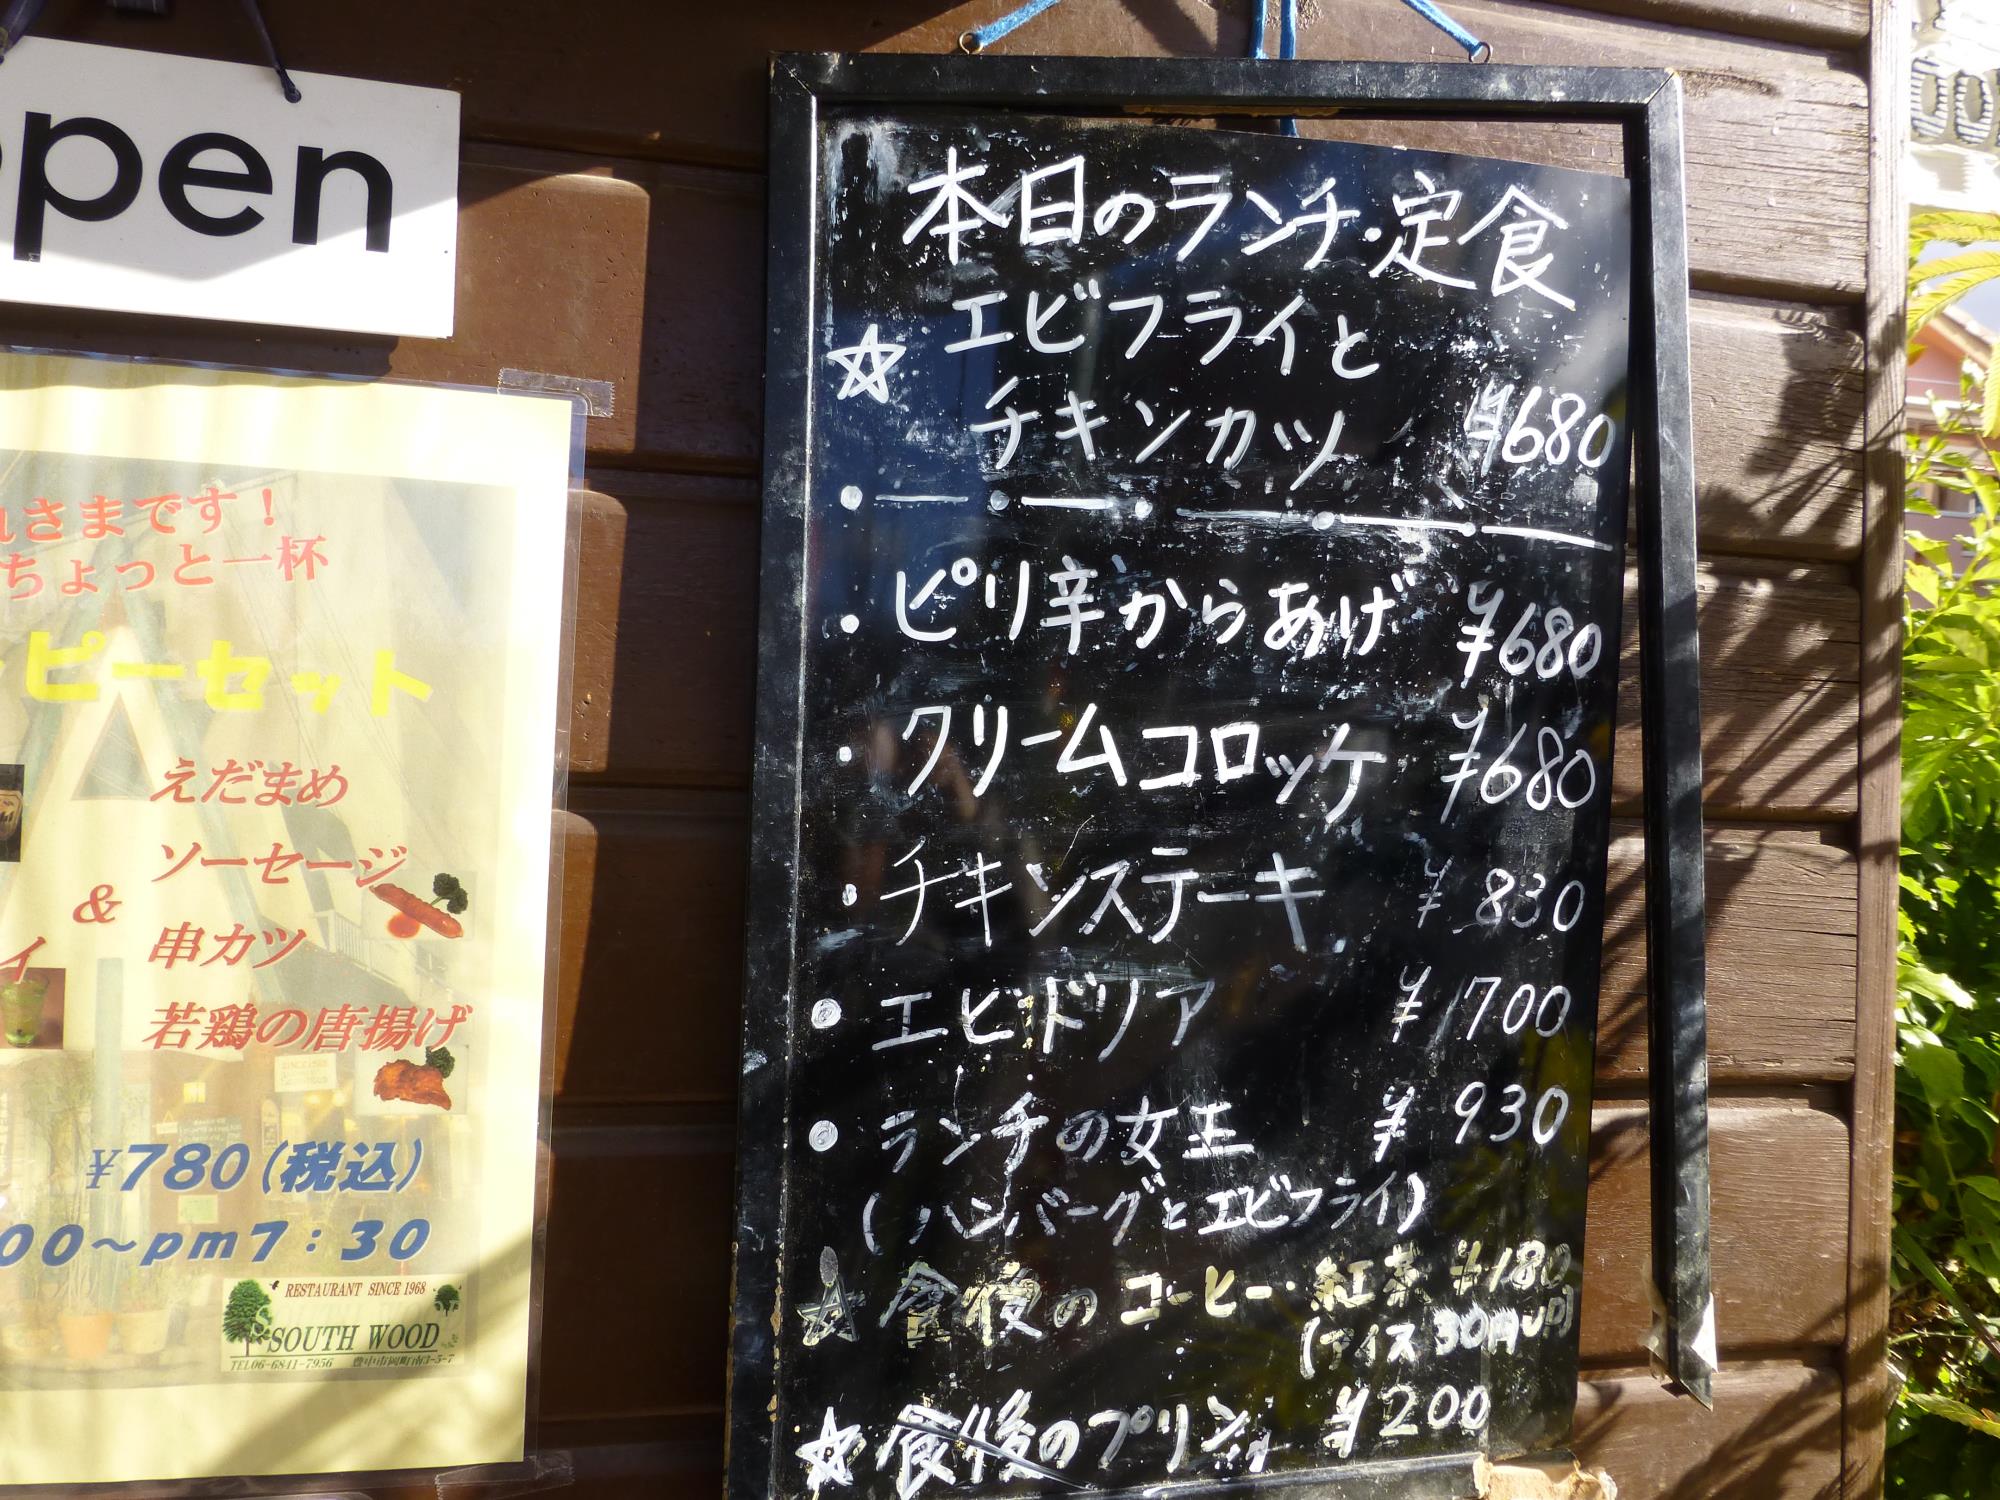 open
れさまです！
ちょっと一杯
ッピーセット
えだまめ
ソーセージ
&
串カツ
イ
若鶏の唐揚げ
¥780(税込)
00～pm7：30
RESTAURANT SINCE 1968
SOUTH WOOD
TEL06-6841-7956 豊中市岡町南3-5-7
本日のランチ・定食
☆ エビフライと
チキンカツ ¥680
・ピリ辛からあげ ¥680
・クリームコロッケ ¥680
・チキンステーキ ¥830
・エビドリア ¥700
・ランチの女王 ¥930
(ハンバーグとエビフライ)
☆食後のコーヒー・紅茶 ¥180
(アイス30円UP)
☆食後のプリン ¥200